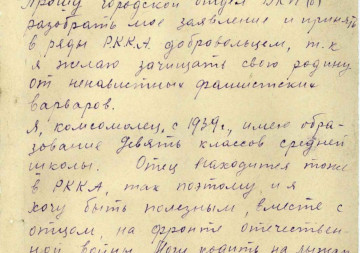 Прошу городской отдел
разобрать мое заявление и принять
в ряды РККА добровольцем, т.к
я желаю защищать свою родину
от ненавистных фашистских
варваров.
Я, комсомолец с 1939г., имею обра-
зование девять классов средней
школы. Отец находится тоже
в РККА, так поэтому и я
хочу быть полезным, вместе с
отцом, на фронте отечествен-
ной войны. Могу ходить на лыжах